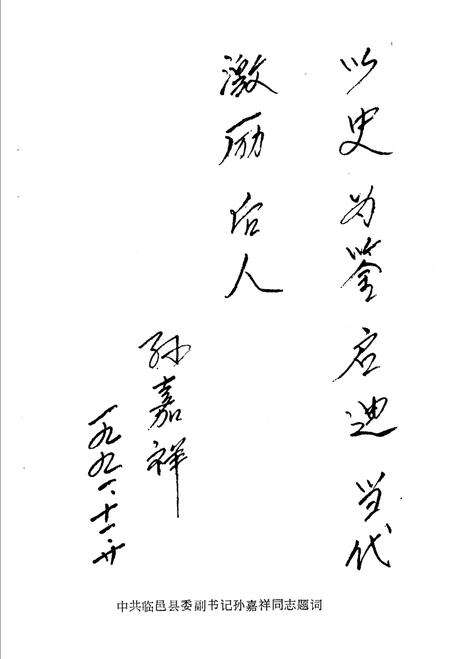 以史为鉴启迪当代
激励后人
孙嘉祥
一九九一·十一·廿
中共临邑县委副书记孙嘉祥同志题词